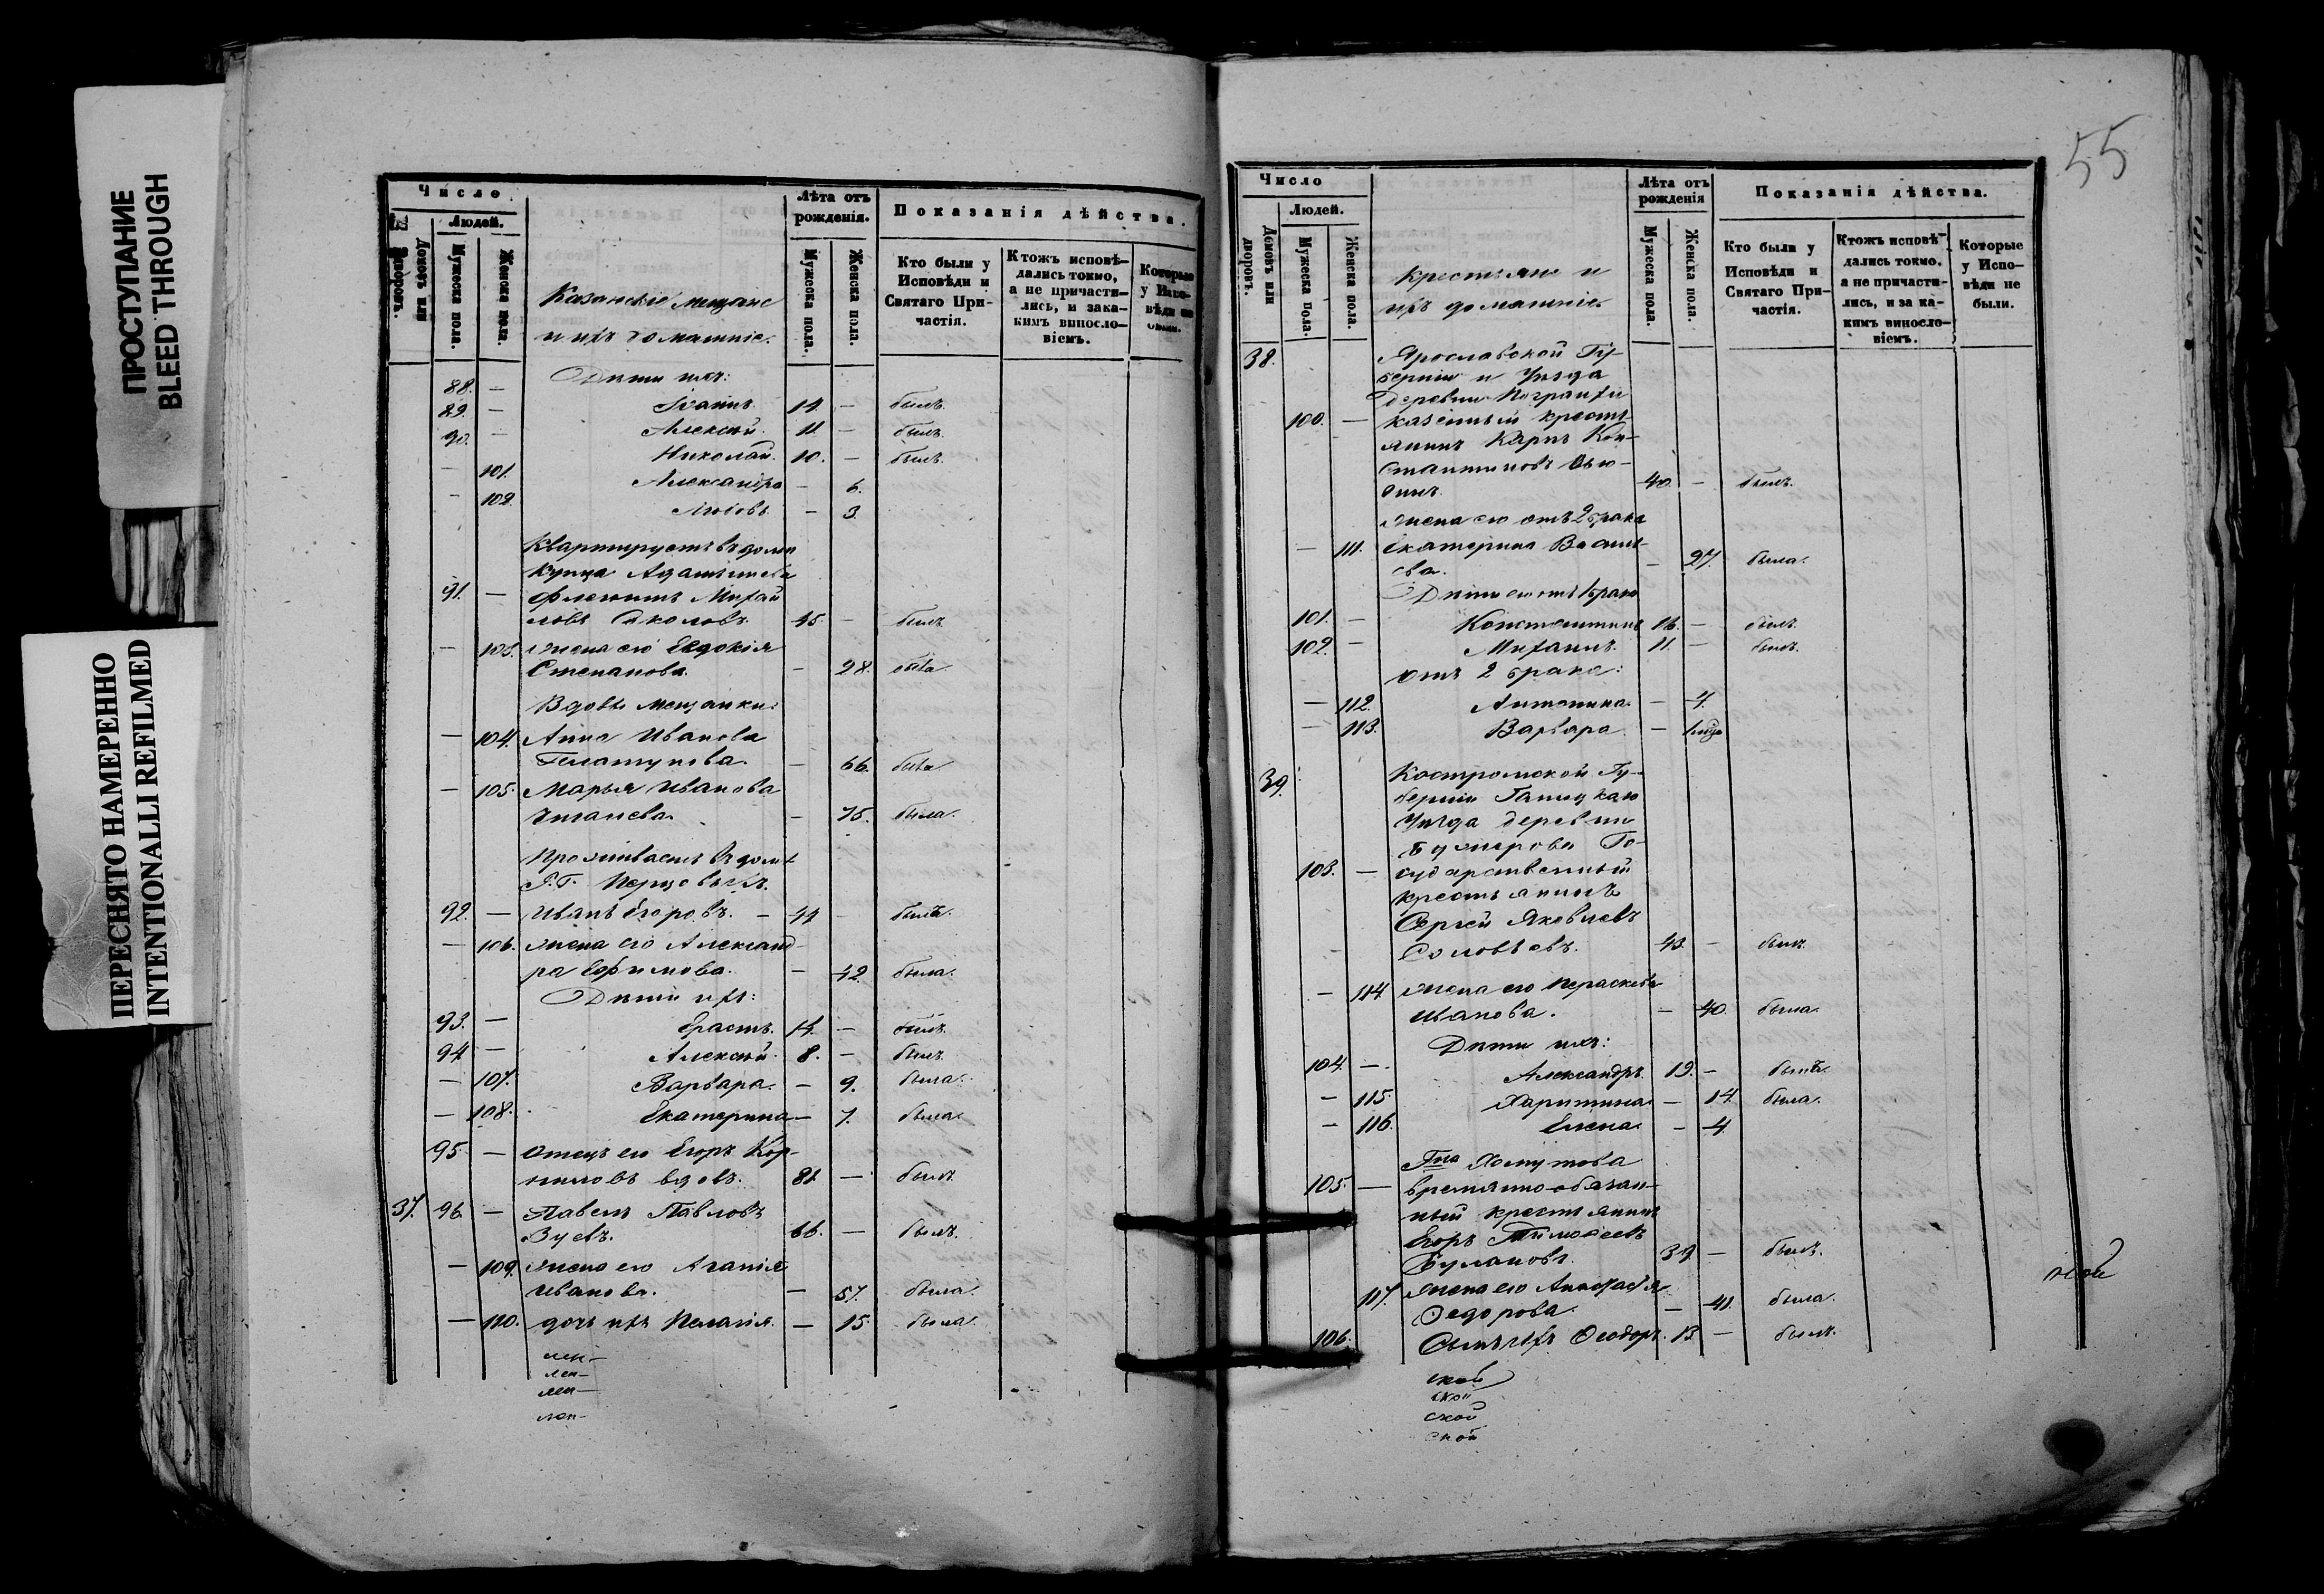 ПРОСТУПАНИЕ
BLEED THROUGH
ПЕРЕСНЯТО НАМЕРЕННО
INTENTIONALLI REFILMED
Число.
Людей.
Домовъ или дворовъ.
Мужеска пола.
Женска пола.
Казанскіе мещане
и ихъ домашніе.
Лѣта отъ рожденія.
Мужеска пола.
Женска пола.
Показанія дѣйства.
Кто были у Исповѣди и Святаго Причастія.
Ктожъ исповѣдались токмо, а не причастились, и за какимъ винословіемъ.
Которые у Исповѣди не были.
Дѣти ихъ:
88. — Іоаннъ 14. — былъ.
89. — Алексѣй. 11. — былъ.
90. — Николай. 10. — былъ.
— 101. Александра — 6.
— 102. Любовь. — 3.
Квартируетъ въ домѣ
купца
91. — Михай-
ловъ Соколовъ. 45. — былъ.
— 103. жена его Евдокія
Степанова. — 28. была
Вдовы мещанки:
— 104. Анна Иванова
— 66. была
— 105. Марья Иванова
— 75. была.
Проживаетъ въ домѣ
Г.Г. Перцовыхъ.
92. — Иванъ Егоровъ. — 44 — былъ.
— 106. жена его Александ-
ра Ефимова. — 42. была.
Дѣти ихъ:
93. — Ерастъ. 14. — былъ.
94. — Алексѣй. 8. — былъ.
— 107. Варвара. — 9. была.
— 108. Екатерина — 7. была.
95. — Отецъ его Егоръ Кор-
ниловъ вдовъ. 81. — былъ.
37. 96. — Павелъ Павловъ
Зуевъ. 66. — былъ.
— 109. жена его Агапія
Иванова. — 57. была.
— 110. дочь ихъ Пелагія. — 15. была.
55
Число
Людей.
Домовъ или дворовъ.
Мужеска пола.
Женска пола.
Крестьяне и
ихъ домашніе.
Лѣта отъ рожденія
Мужеска пола.
Женска пола.
Показанія дѣйства.
Кто были у Исповѣди и Святаго Причастія.
Ктожъ исповѣдались токмо. а не причастились, и за какимъ винословіемъ.
Которые у Исповѣди не были.
38. Ярославской Гу-
берніи и Уѣзда
деревни
100. — казенный кресть-
янинъ Карпъ Кон-
стантиновъ
40. — былъ.
жена его отъ 2 брака
— 111. Екатерина Василь-
ева. — 27. была.
Дѣти его отъ 1 брака
101. — Константинъ 16. — былъ.
102. — Михаилъ. 11. — былъ.
отъ 2 брака:
— 112. Антонина. — 4.
— 113. Варвара. —
39. Костромской Гу-
берніи Галицкаго
Уѣзда деревни
Го-
103. — сударственный
крестьянинъ
Сергѣй Яковлевъ
Соловьевъ. 43. — былъ.
— 114. жена его Пераскева
Иванова. — 40. была.
Дѣти ихъ:
104. — Александръ. 19. — былъ.
— 115. Харитина — 14. была.
— 116. Елена. — 4.
Г-на Хомутова
105. — временно-обязан-
ный крестьянинъ
Егоръ Тимоѳеевъ
Булановъ. 39 — былъ.
117. жена его Анастасія
Ѳедорова. — 41. была.
106. Сынъ ихъ Ѳеодоръ. 13 — былъ.
ской
ской
ской